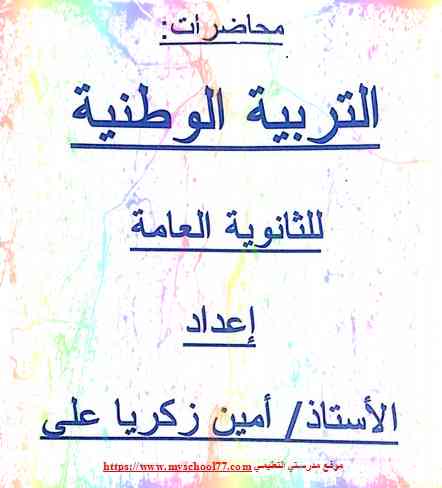 محاضرات:
التربية الوطنية
للثانوية العامة
إعداد
الأستاذ/ أمين زكريا على
موقع مدرستي التعليمي https://www.myschool77.com